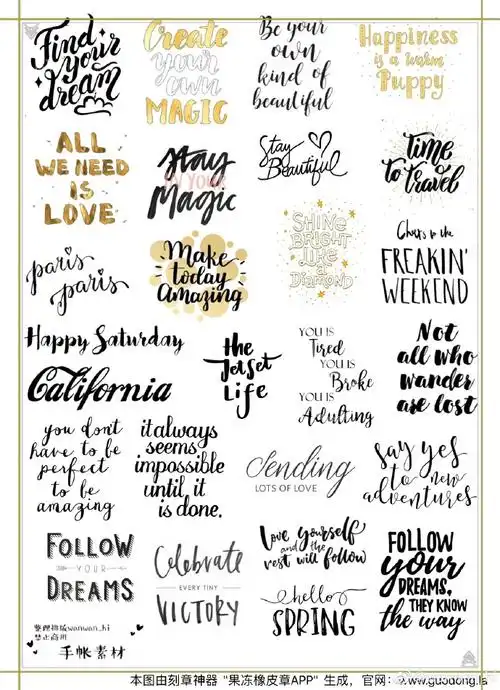 Find
your
dream
Create
your
own
MAGIC
Be your
own
kind of
beautiful
Happiness
is a warm
Puppy
ALL
WE NEED
IS
LOVE
Stay
IN YOUR
Magic
Stay
Beautiful
Time
to travel
paris
paris
Make
today
Amazing
SHINE
BRIGHT
LIKE
a
DIAMOND
Cheers to the
FREAKIN'
WEEKEND
Happy Saturday
California
the
JetSet
Life
YOU IS
Tired
YOU IS
Broke
YOU IS
Adulting
Not
all who
wander
are lost
you don't
have to be
perfect
to be
amazing
it always
seems
impossible
until it
is done.
Sending
LOTS OF LOVE
say yes
to new
adventures
FOLLOW
YOUR
DREAMS
Celebrate
EVERY TINY
VICTORY
love yourself
and the
rest will follow
hello
SPRING
FOLLOW
your
DREAMS,
THEY KNOW
the way
整理排版wanwan_hi
禁止商用
手帐素材
本图由刻章神器 "果冻橡皮章APP" 生成，官网：www.guodong.la